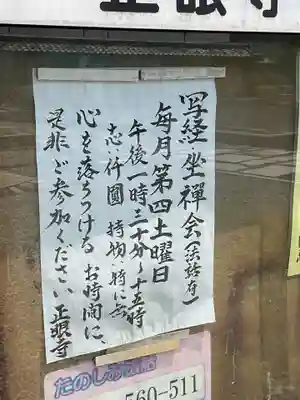 正眼寺
写経・坐禅会(法話有)
毎月第四土曜日
午後一時三十分〜十五時
志 仟圓 持物 特に無
心を落ちつける お時間に、
是非ご参加ください 正眼寺
たのしみ
560-511